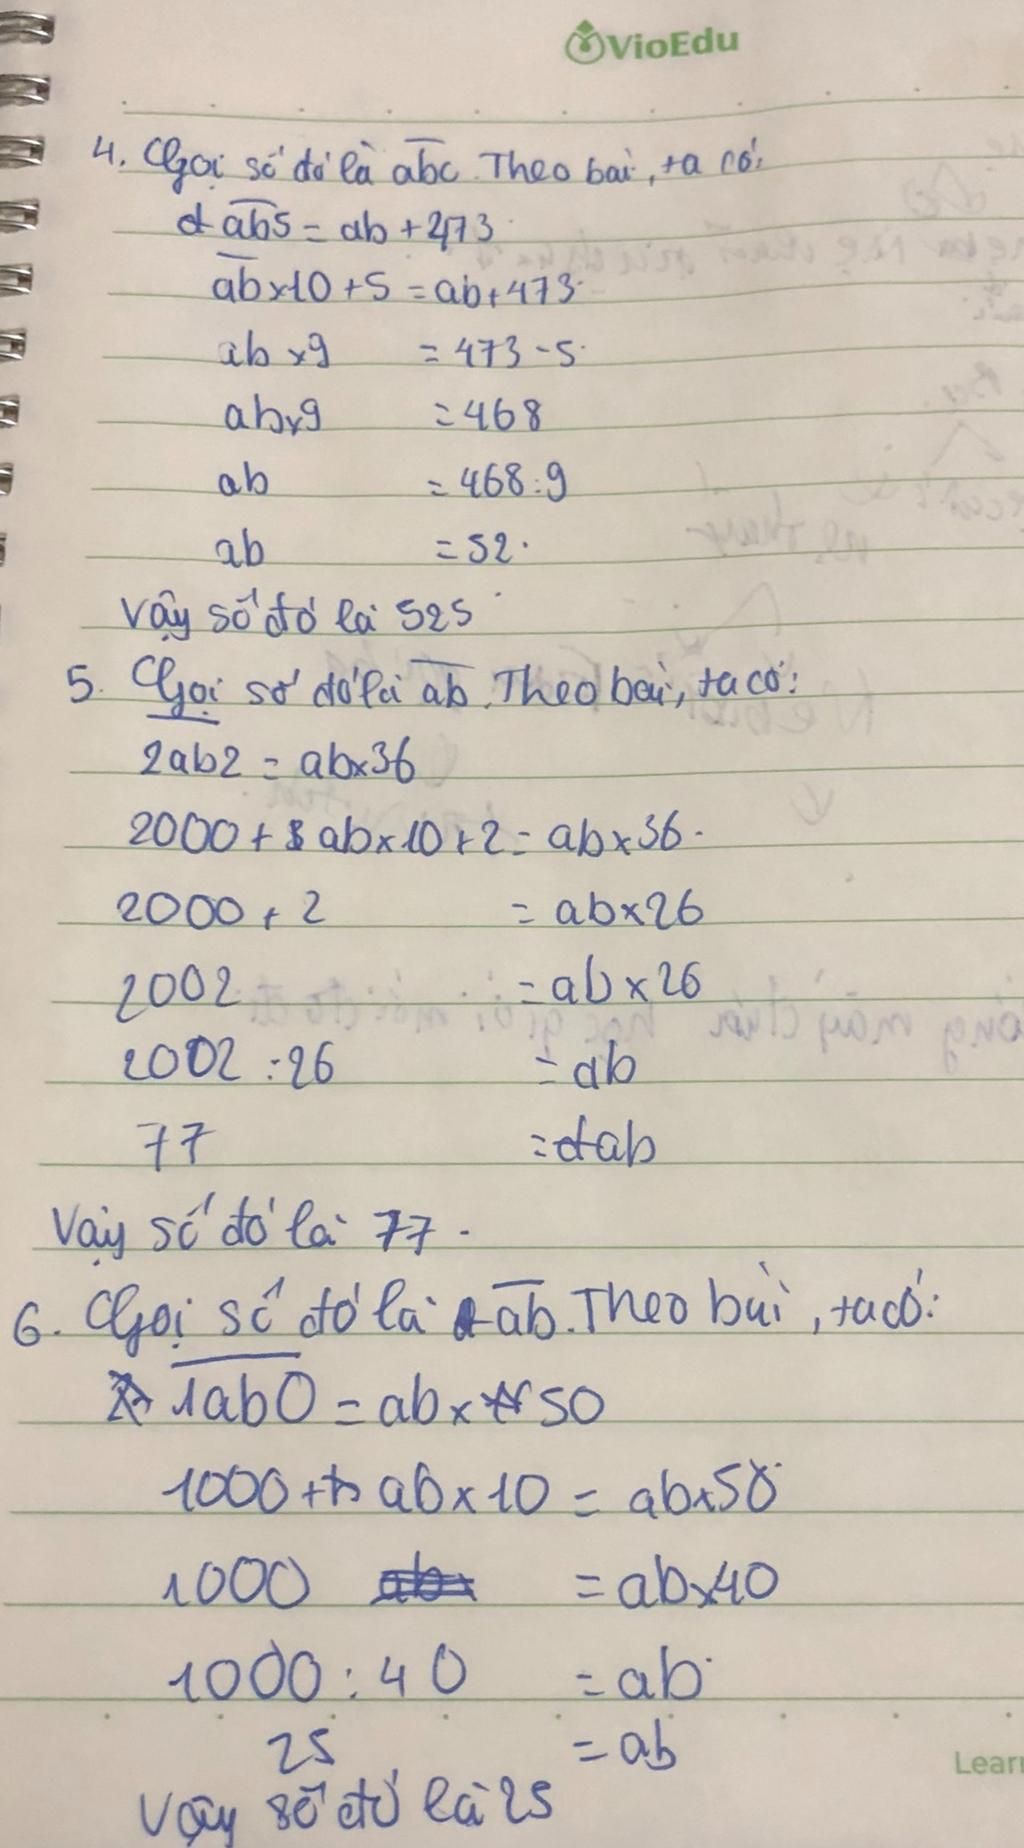 VioEdu
4. Gọi số đó là abc. Theo bài, ta có:
ab5 = ab + 473.
ab x 10 + 5 = ab + 473.
ab x 9 = 473 - 5.
ab x 9 = 468
ab = 468 : 9
ab = 52.
Vậy số đó là 525
5. Gọi số đó là ab. Theo bài, ta có:
2ab2 = ab x 36
2000 + ab x 10 + 2 = ab x 36.
2000 + 2 = ab x 26
2002 = ab x 26
2002 : 26 = ab
77 = ab
Vậy số đó là 77.
6. Gọi số đó là ab. Theo bài, ta có:
1ab0 = ab x 50
1000 + ab x 10 = ab x 50
1000 = ab x 40
1000 : 40 = ab
25 = ab
Vậy số đó là 25
Learn